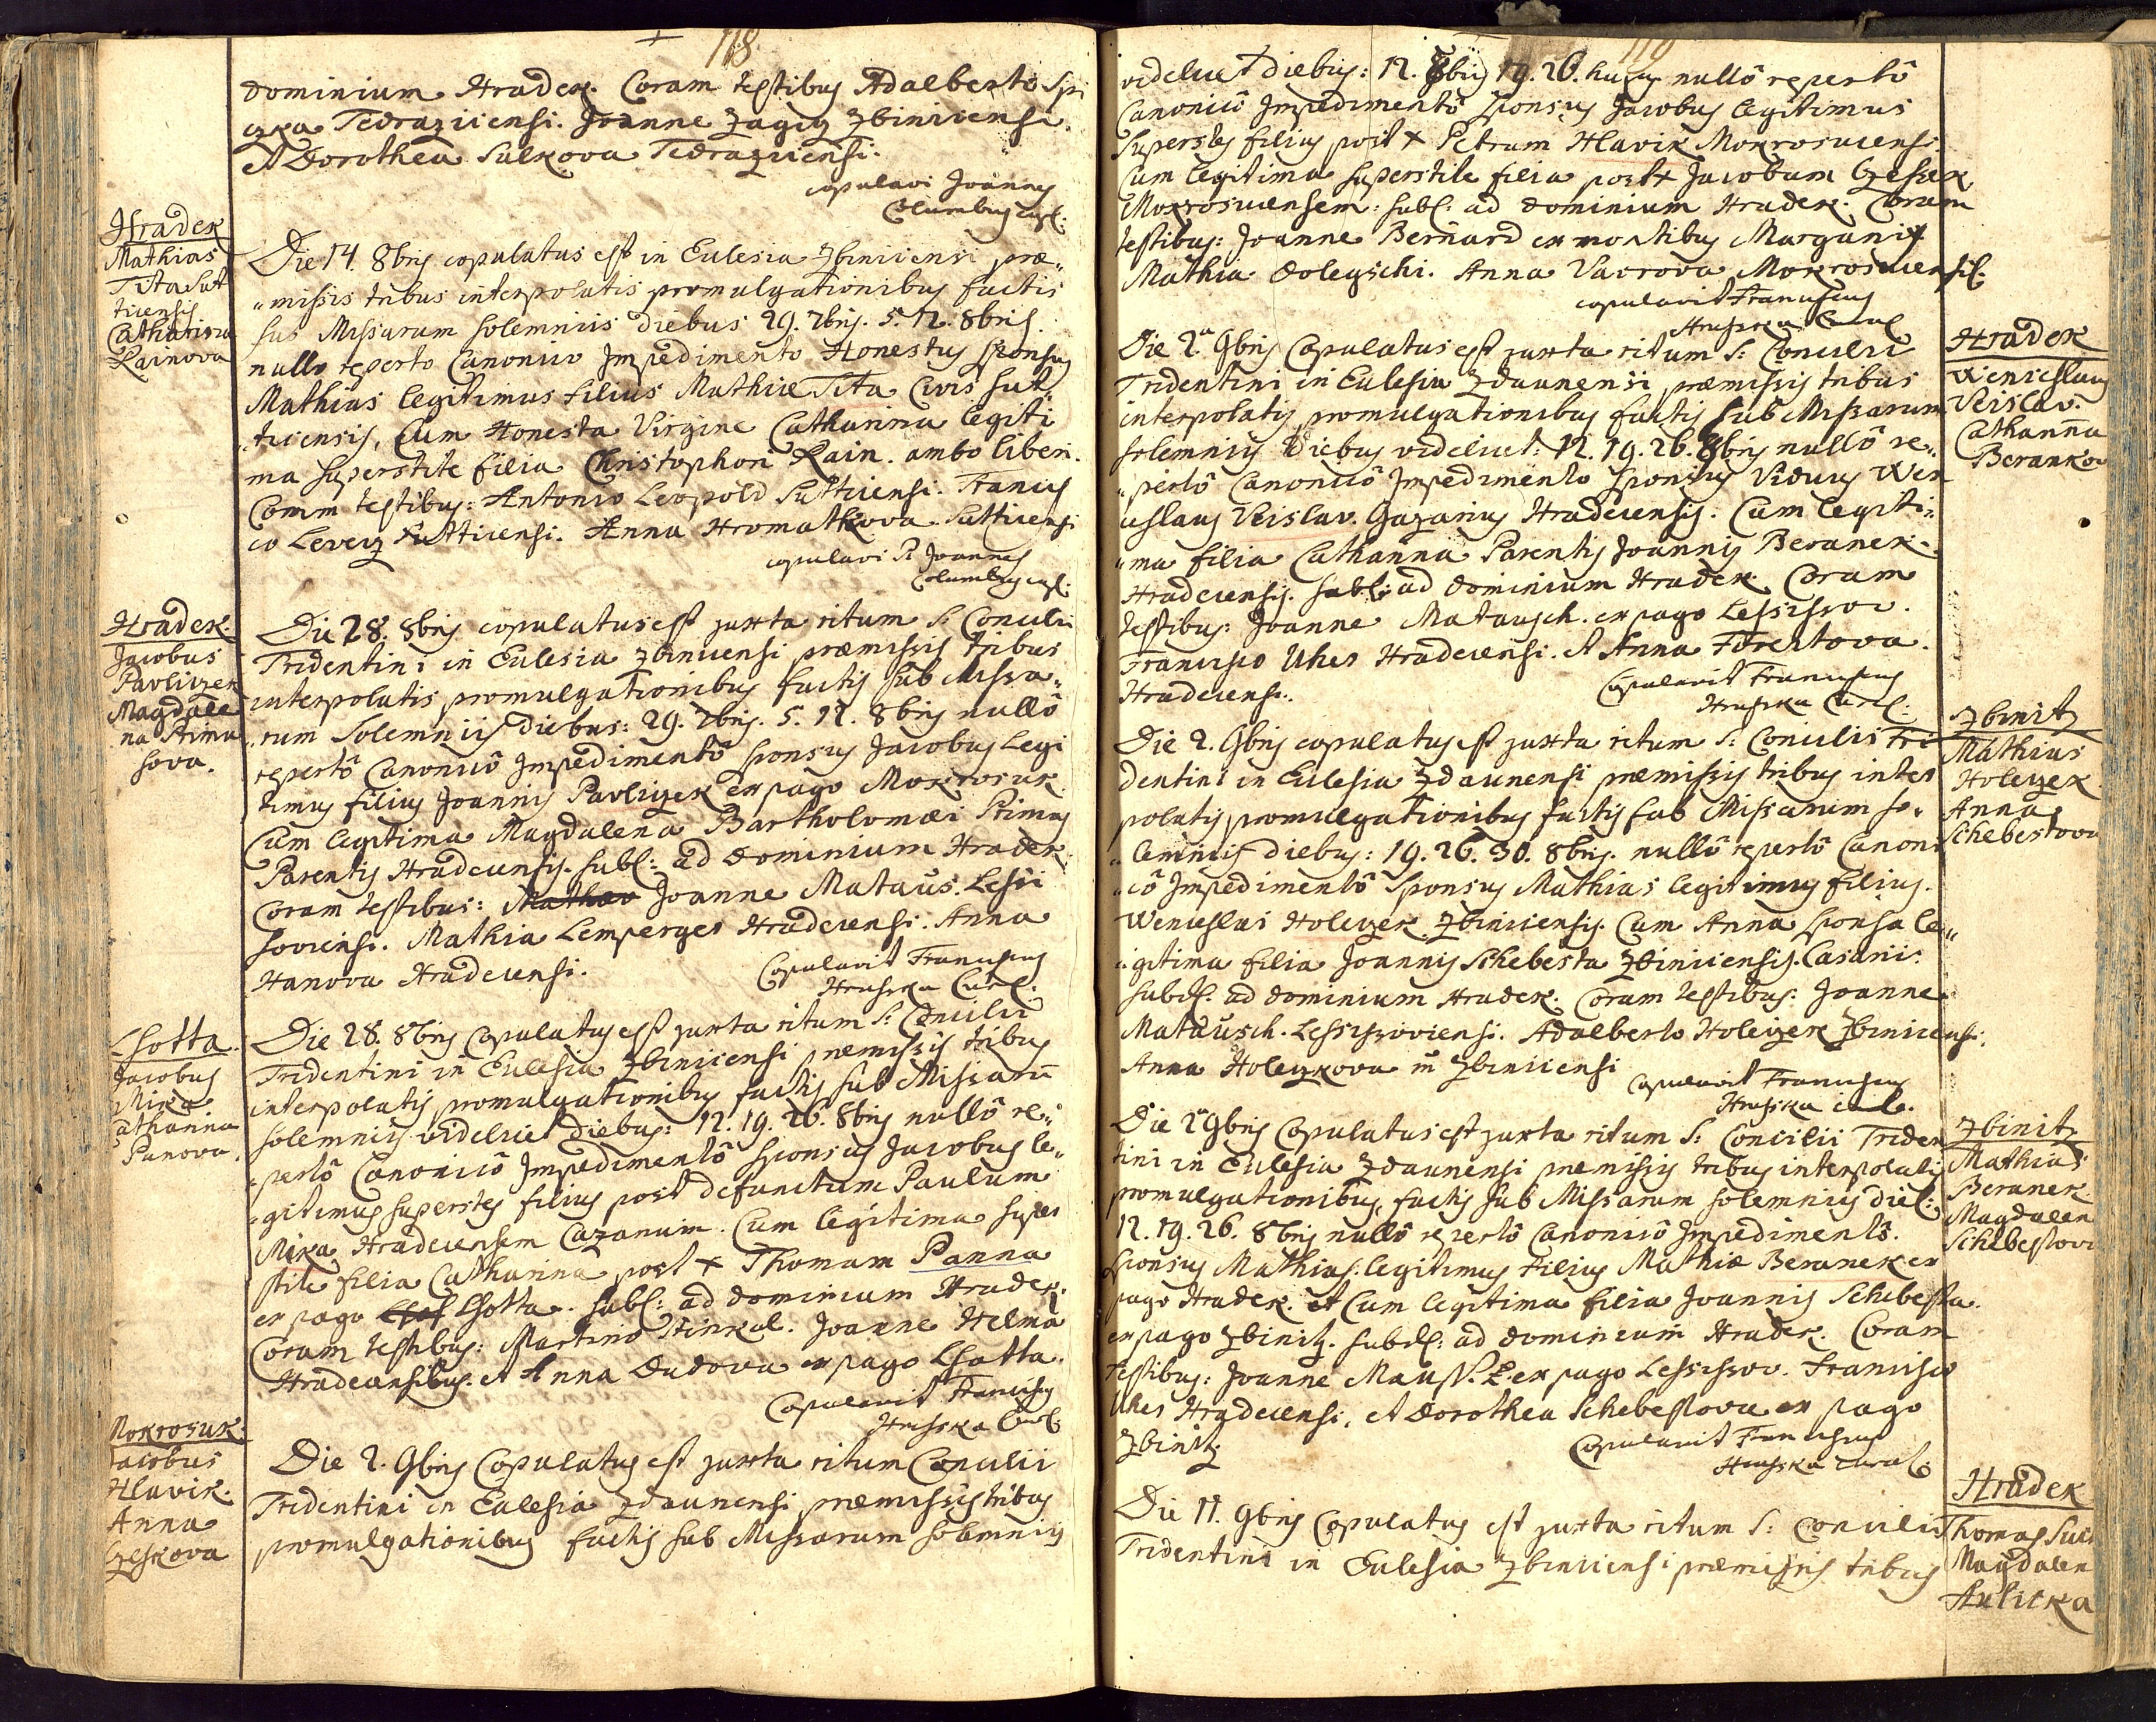 118
dominium Hradek. Coram testibus Adalberto Spi
czka Tedraziicensi. Joanne Zagig Zbiniicensi.
et Dorothea Sulkova Tedraziicensi.
copulavi Joannes
Columbus capl:
Hradek
Mathias
Tita Sut
ticensis
Catharina
Rainova
Die 14. 8bris copulatus est in Ecclesia Zbiniicensi præ„
„missis tribus interpolatis promulgationibus factis
sub Missarum solemniis diebus 29. 7bris. 5. 12. 8bris.
nullo reperto Canonico Impedimento Honestus sponsus
Mathias legitimus filius Mathiæ Tita Civis Sut„
„ticensis, Cum Honesta Virgine Catharina legiti
ma superstite filia Christophori Rain. ambo liberi.
Coram testibus: Antonio Leopold Sutticensi. Francis
co Leverz Sutticensi. Anna Hromatkova Sutticensi
copulavi P. Joannes
Columbus capl:
Hradek.
Jacobus
Pavliczek
Magdale
na Stimu
sova.
Die 28. 8bris copulatus est juxta ritum S. Concilii
Tridentini in Ecclesia Zbiniicensi præmissis tribus
interpolatis promulgationibus factis sub Missa„
„rum Solemniis diebus: 29. 7bris. 5. 12. 8bris nullô
repertô Canonicô Impedimentô sponsus Jacobus Legi
timus filius Joannis Pavliczek ex pago Mokrosuk.
Cum legitima Magdalena Bartholomæi Stimus
Parentis Hradecensis. subd: ad Dominium Hradek.
Coram testibus: Joanne Mataus. Lessi
soviensi. Mathia Lemperger Hradecensi. Anna
Hanova Hradecensi.
Copulavit Franciscus
Hruska Cur:
Lhotta.
Jacobus
Mika
Catharina
Panova.
Die 28. 8bris Copulatus est juxta ritum S: Concilii
Tridentini in Ecclesia Zbiniicensi præmissis tribus
interpolatis promulgationibus factis sub Missarū
solemniis videlicet diebus: 12. 19. 26. 8bris nullô re„
„pertô Canonicô Impedimentô sponsus Jacobus le„
„gitimus superstes filius post defunctum Paulum
Mika Hradecensem Cazarum. Cum legitima super
stite filia Catharina post + Thomam Panna
ex pago Lhotta. subd: ad dominium Hradek.
Coram testibus: Martino Hinkal. Joanne Helma
Hradecensibus. et Anna Dudova ex pago Lhotta.
Copulavit Franciscus
Hruska Cur:
Mokrosuk.
Jacobus
Hlavik.
Anna
Czeskova
Die 2. 9bris Copulatus est juxta ritum Concilii
Tridentini in Ecclesia Zdaunensi præmissis tribus
promulgationibus factis sub Missarum solemniis
119
videlicet diebus: 12. 8bris 19. 26. hujus nullô repertô
Canonicô Impedimentô sponsus Jacobus legitimus
Superstes filius post + Petrum Hlavik Mokrosucensi
Cum legitima superstite filia post + Jacobum Czessek
Mokrosucensem: subd: ad dominium Hradek. Coram
testibus: Joanne Bernard ex montibus
Mathia Dolegschi. Anna Vavrova Mokrosucensi.
copulavit Franciscus
Hruska Cur:
Hradek
Wenceslaus
Veislav.
Catharina
Berankov
Die 2a 9bris Copulatus est juxta ritum S: Concilii
Tridentini in Ecclesia Zdaunensi præmissis tribus
interpolatis promulgationibus factis sub Missarum
solemniis Diebus videlicet: 12. 19. 26. 8bris nullô re„
„pertô Canonicô Impedimento sponsus Viduus Wen
ceslaus Veislav. Gazarius Hradecensis. Cum legiti„
„ma filia Catharina Parentis Joannis Beranek
Hradecensis. subd: ad Dominium Hradek. Coram
testibus: Joanne Matausch. ex pago Lessissov.
Francisco Uher Hradecensi. et Anna Forchtova.
Hradecensi.
Copulavit Franciscus
Hruska Cur:
Zbinitz
Mathias
Holeczek
Anna
Schebestova
Die 2. 9bris copulatus est juxta ritum S: Concilii Tri
dentini in Ecclesia Zdaunensi præmissis tribus inter
polatis promulgationibus factis sub Missarum so„
„lemniis diebus: 19. 26. 30. 8bris. nullô repertô Canoni
„cô Impedimentô Sponsus Mathias legitimus filius.
Wenceslai Holeczek Zbiniicensis. Cum Anna sponsa le„
„gitima filia Joannis Schebesta Zbiniicensis. Casarii.
subd: ad dominium Hradek. Coram testibus: Joanne
Matausch. Lessissoviensi. Adalberto Holeczek Zbiniicensi.
Anna Holeczkova Zbiniicensi
copulavit Franciscus
Hruska cur.
Zbinitz
Mathias
Beranek
Magdalen
Schebestov
Die 2a 9bris Copulatus est juxta ritum S: Concilii Triden
tini in Ecclesia Zdaunensi præmissis tribus interpolatis
promulgationibus, factis sub Missarum solemniis dieb:
12. 19. 26. 8bris nullô repertô Canonicô Impedimentô.
sponsus Mathias. legitimus filius Mathiæ Beranek ex
pago Hradek. et Cum legitima filia Joannis Schebesta.
ex pago Zbinitz. subd: ad dominium Hradek. Coram
testibus: Joanne ex pago Lessissov. Francisco
Uher Hradecensi, et Dorothea Schebestova ex pago
Zbinitz
Copulavit Franciscus
Hruska cur:
Hradek
Thomas Sulk
Magdalen
Aulicka
Die 11. 9bris Copulatus est juxta ritum S: Concilii
Tridentini in Ecclesia Zbiniicensi præmissis tribus